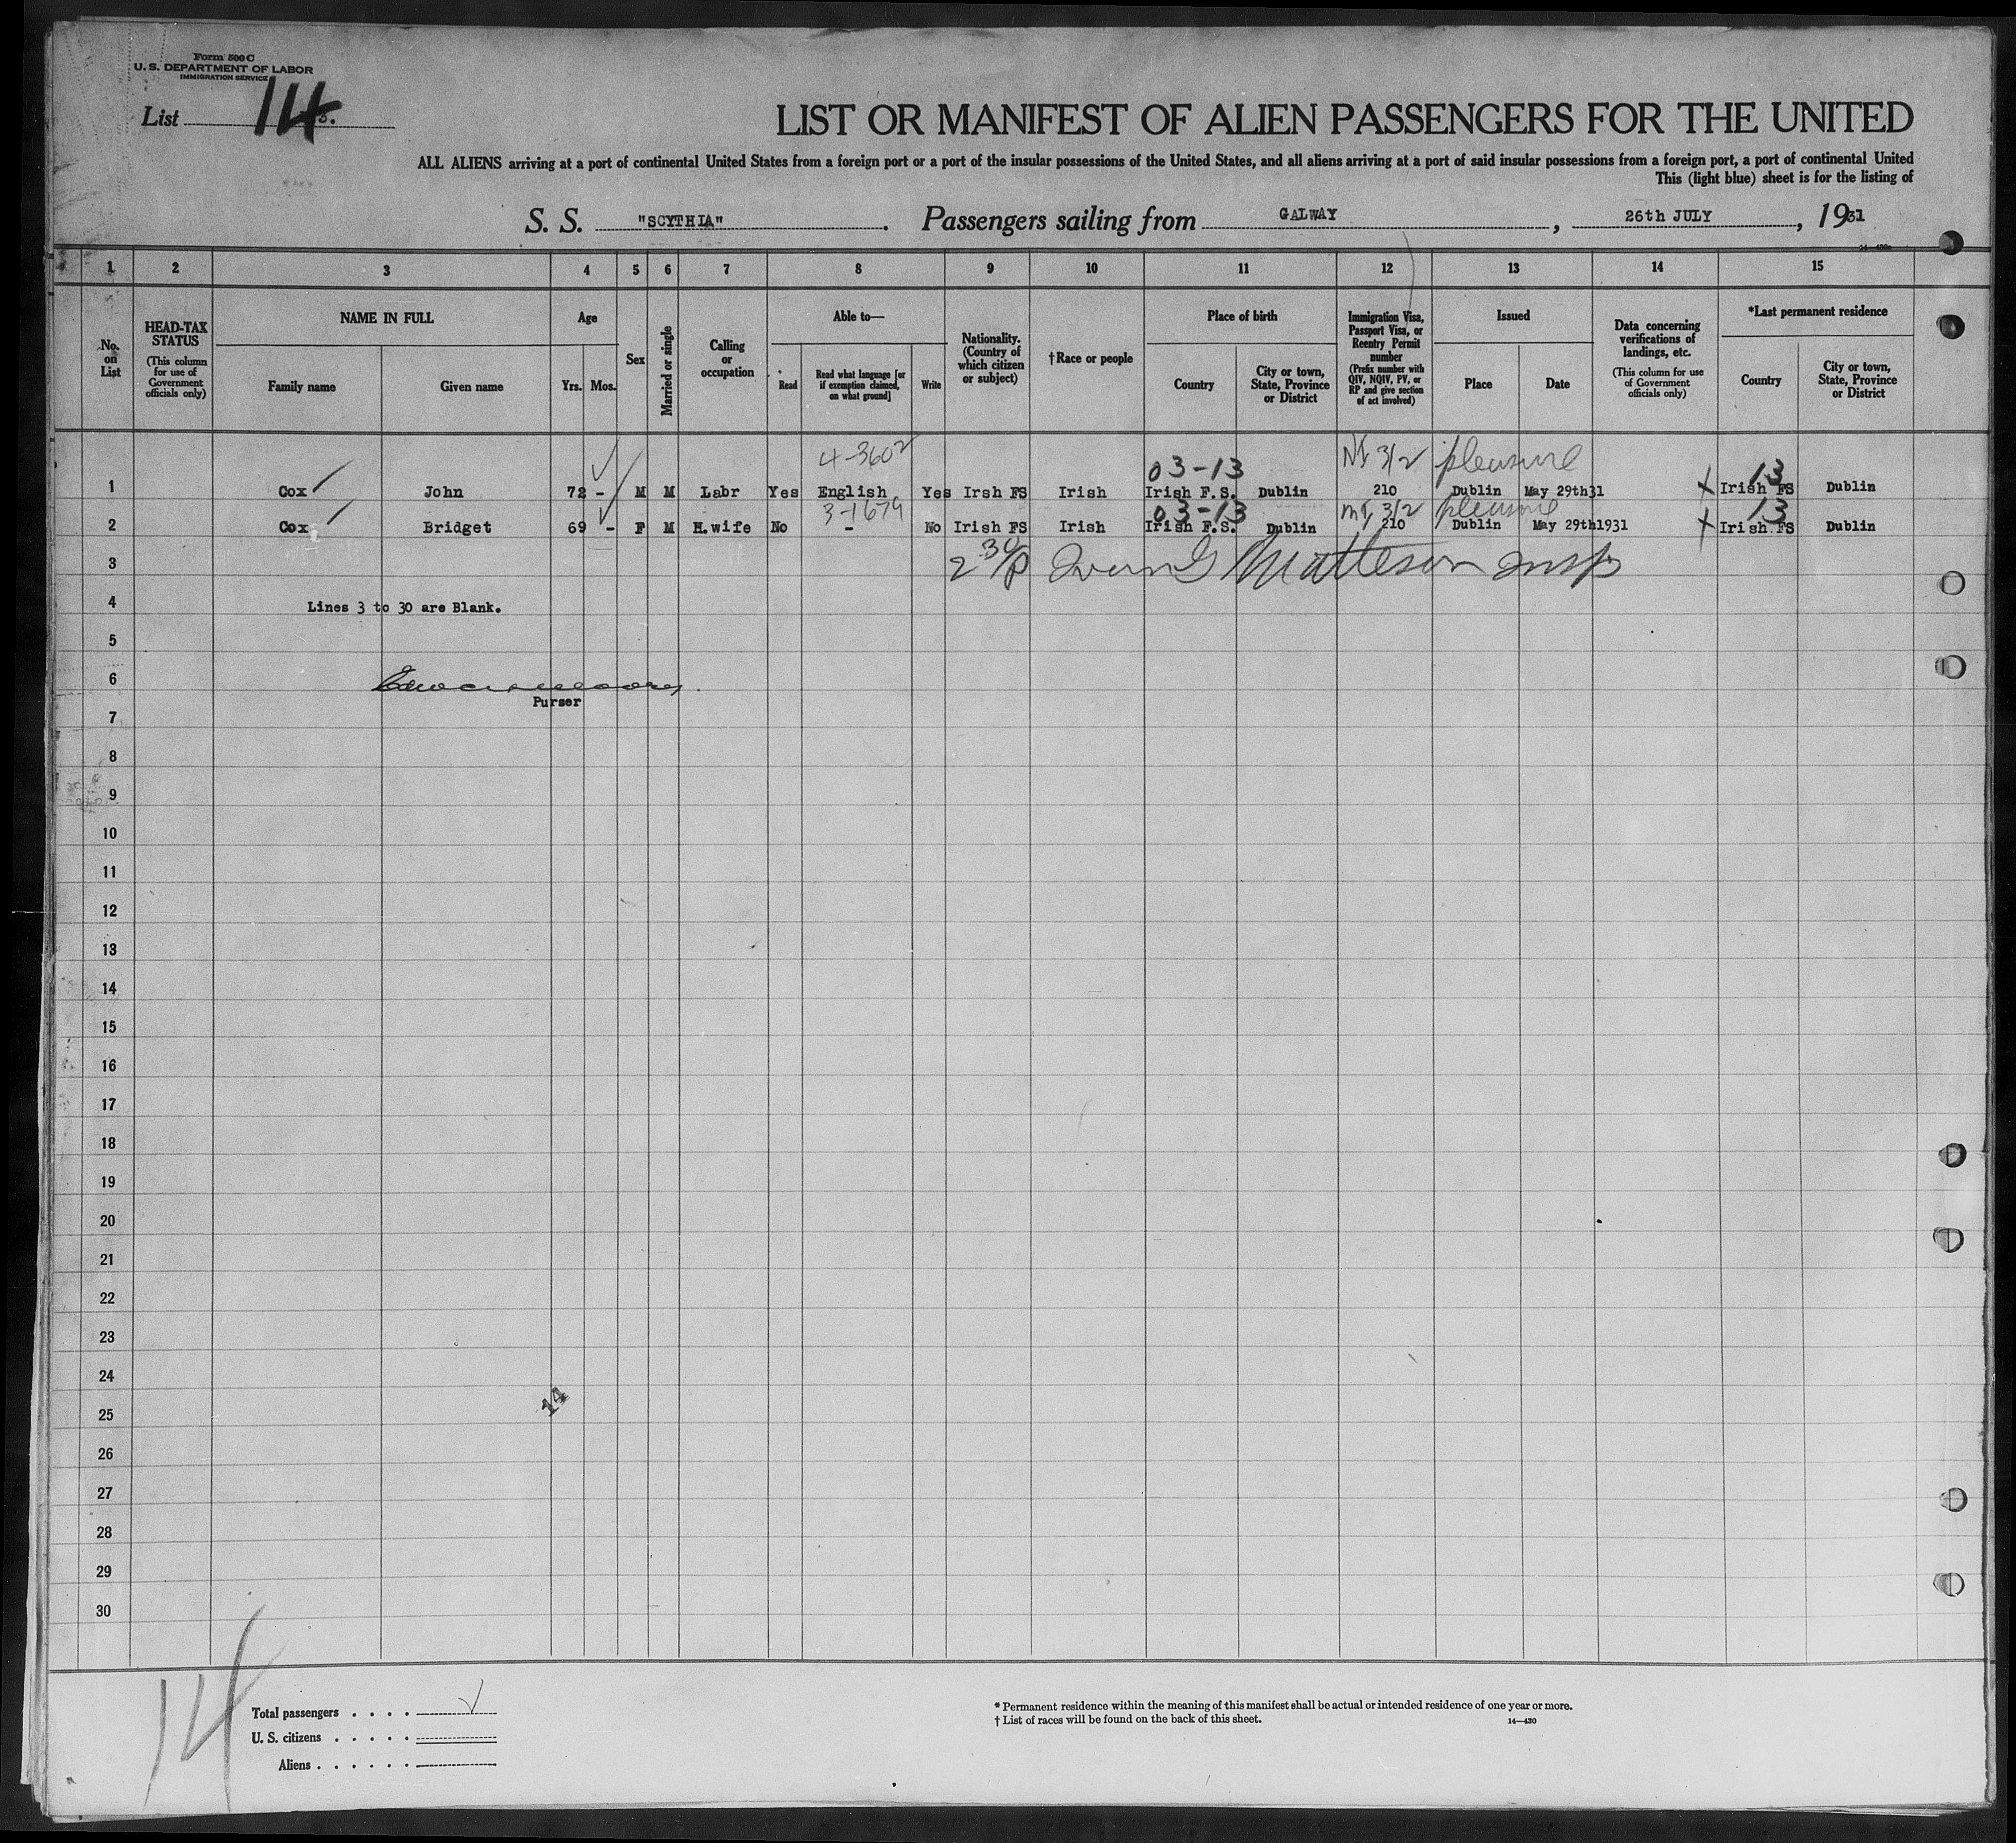 Form 500 C
U. S. DEPARTMENT OF LABOR
IMMIGRATION SERVICE
List 14
LIST OR MANIFEST OF ALIEN PASSENGERS FOR THE UNITED
ALL ALIENS arriving at a port of continental United States from a foreign port or a port of the insular possessions of the United States, and all aliens arriving at a port of said insular possessions from a foreign port, a port of continental United
This (light blue) sheet is for the listing of
S. S. "SCYTHIA". Passengers sailing from GALWAY, 26th JULY, 1931
1 2 3 4 5 6 7 8 9 10 11 12 13 14 15
No. on List
HEAD-TAX STATUS
(This column for use of Government officials only)
NAME IN FULL
Family name Given name
Age
Yrs. Mos.
Sex
Married or single
Calling or occupation
Able to—
Read
Read what language [or if exemption claimed, on what ground]
Write
Nationality. (Country of which citizen or subject)
†Race or people
Place of birth
Country
City or town, State, Province or District
Immigration Visa, Passport Visa, or Reentry Permit number
(Prefix number with QIV, NQIV, PV, or RP and give section of act involved)
Issued
Place Date
Data concerning verifications of landings, etc.
(This column for use of Government officials only)
*Last permanent residence
Country
City or town, State, Province or District
4-3602 03-13 3/2 pleasure 13
1 Cox John 72 - M M Labr Yes English Yes Irsh FS Irish Irish F.S. Dublin 210 Dublin May 29th31 Irish FS Dublin
3-1679 03-13 3/2 pleasure 13
2 Cox Bridget 69 - F M H.wife No - No Irish FS Irish Irish F.S. Dublin 210 Dublin May 29th1931 Irish FS Dublin
3 2 30/P G Matteson Insp
4 Lines 3 to 30 are Blank.
5
6
Purser
7
8
9
10
11
12
13
14
15
16
17
18
19
20
21
22
23
24
14
25
26
27
28
29
30
14
Total passengers . . . .
U. S. citizens . . . . .
Aliens . . . . . .
* Permanent residence within the meaning of this manifest shall be actual or intended residence of one year or more.
† List of races will be found on the back of this sheet. 14—430